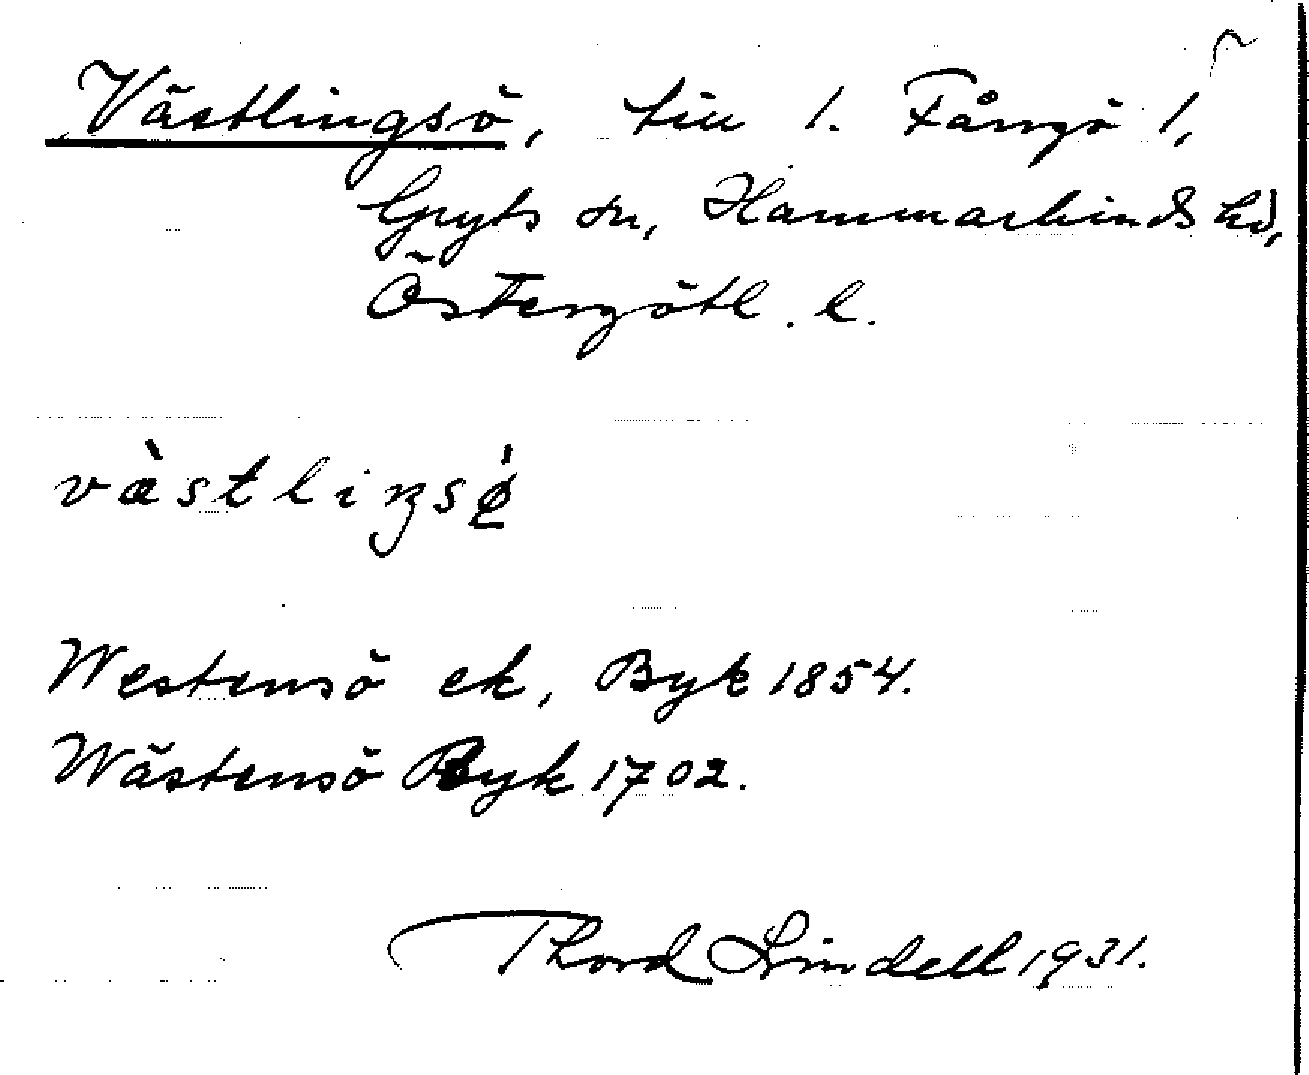 Västlingsö, till 1. Fångö 1,
Gryts sn, Hammarkinds hd,
Östergötl. l.
vàstliŋsǿ̨
Westensö ek, Byk 1854.
Wästensö Byk 1702.
Thord Lindell 1931.